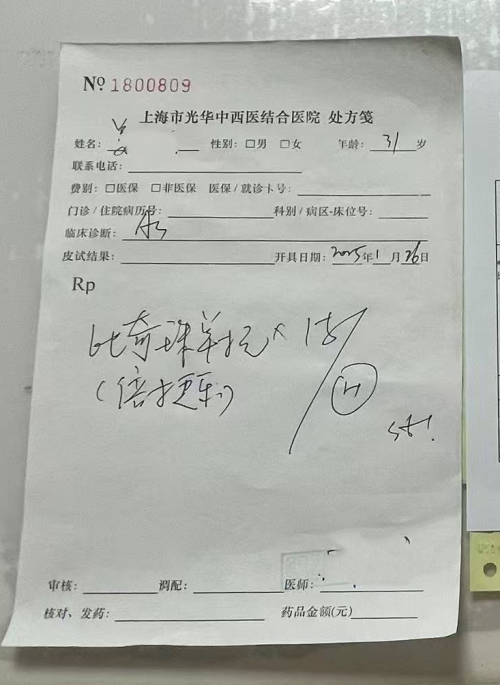 № 1800809
上海市光华中西医结合医院 处方笺
姓名: 性别: □男 □女 年龄: 31 岁
联系电话:
费别: □医保 □非医保 医保/就诊卡号:
门诊/住院病历号: 科别/病区-床位号:
临床诊断: AS
皮试结果: 开具日期: 2025年1月26日
Rp
比奇珠单抗 × 1支
(倍捷乐)
H
st!
审核: 调配: 医师:
核对、发药: 药品金额(元)